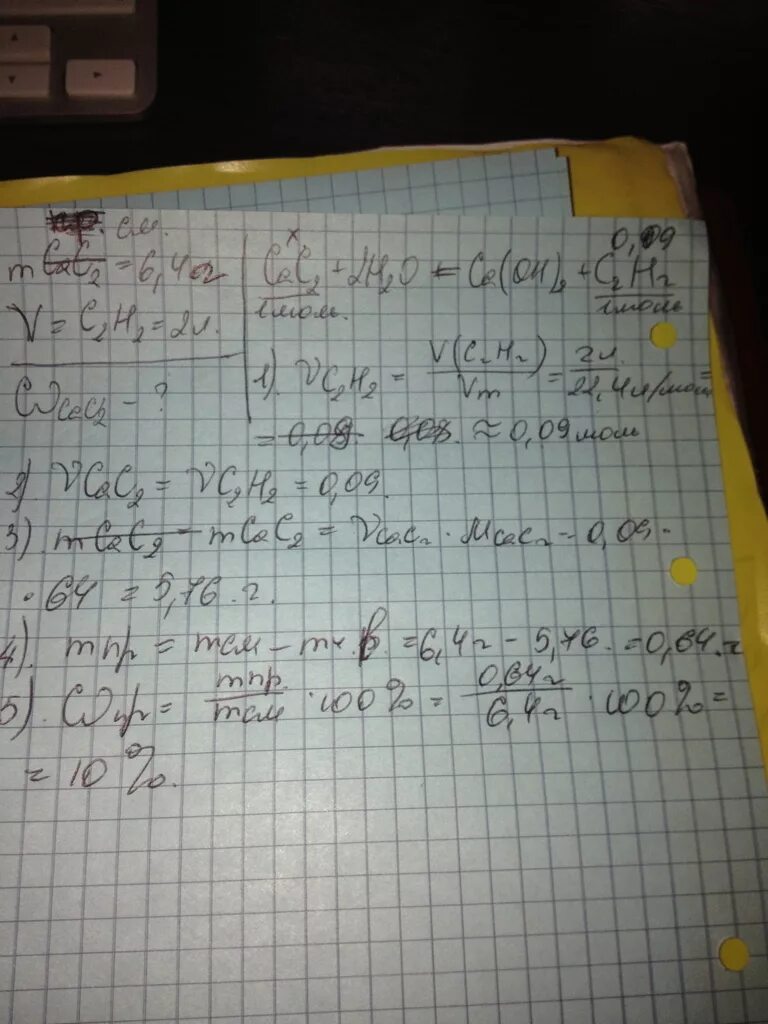 см.
m CaC₂ = 6,4г
V = C₂H₂ = 2л.
ωCaC₂ - ?
x 0,09
CaC₂ + 2H₂O = Ca(OH)₂ + C₂H₂
1моль. 1моль
1). νC₂H₂ = V(C₂H₂)/Vm = 2л/22,4л/моль =
= 0,09 0,08 ≈ 0,09 моль
2) νCaC₂ = νC₂H₂ = 0,09.
3) mCaC₂ - mCaC₂ = νCaC₂ · MCaC₂ - 0,09 ·
· 64 = 5,76 г.
4). mпр = mсм - mч.в. = 6,4г - 5,76. = 0,64.г
5). ωпр = mпр/mсм · 100% = 0,64г/6,4г · 100% =
= 10%.